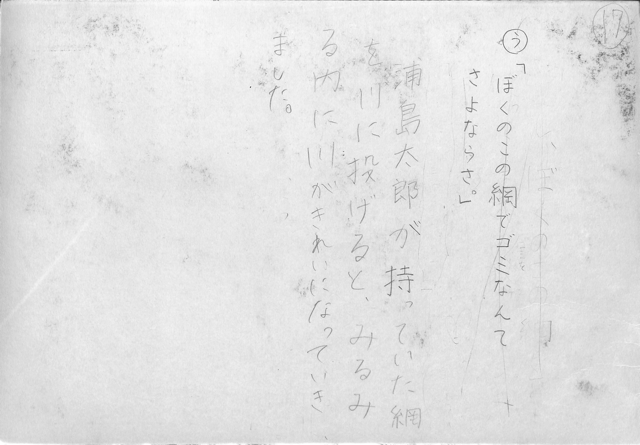 17
う「ぼくのこの網でゴミなんて
さよならさ。」
浦島太郎が持っていた網
を川に投げると、みるみ
る内に川がきれいになっていき
ました。